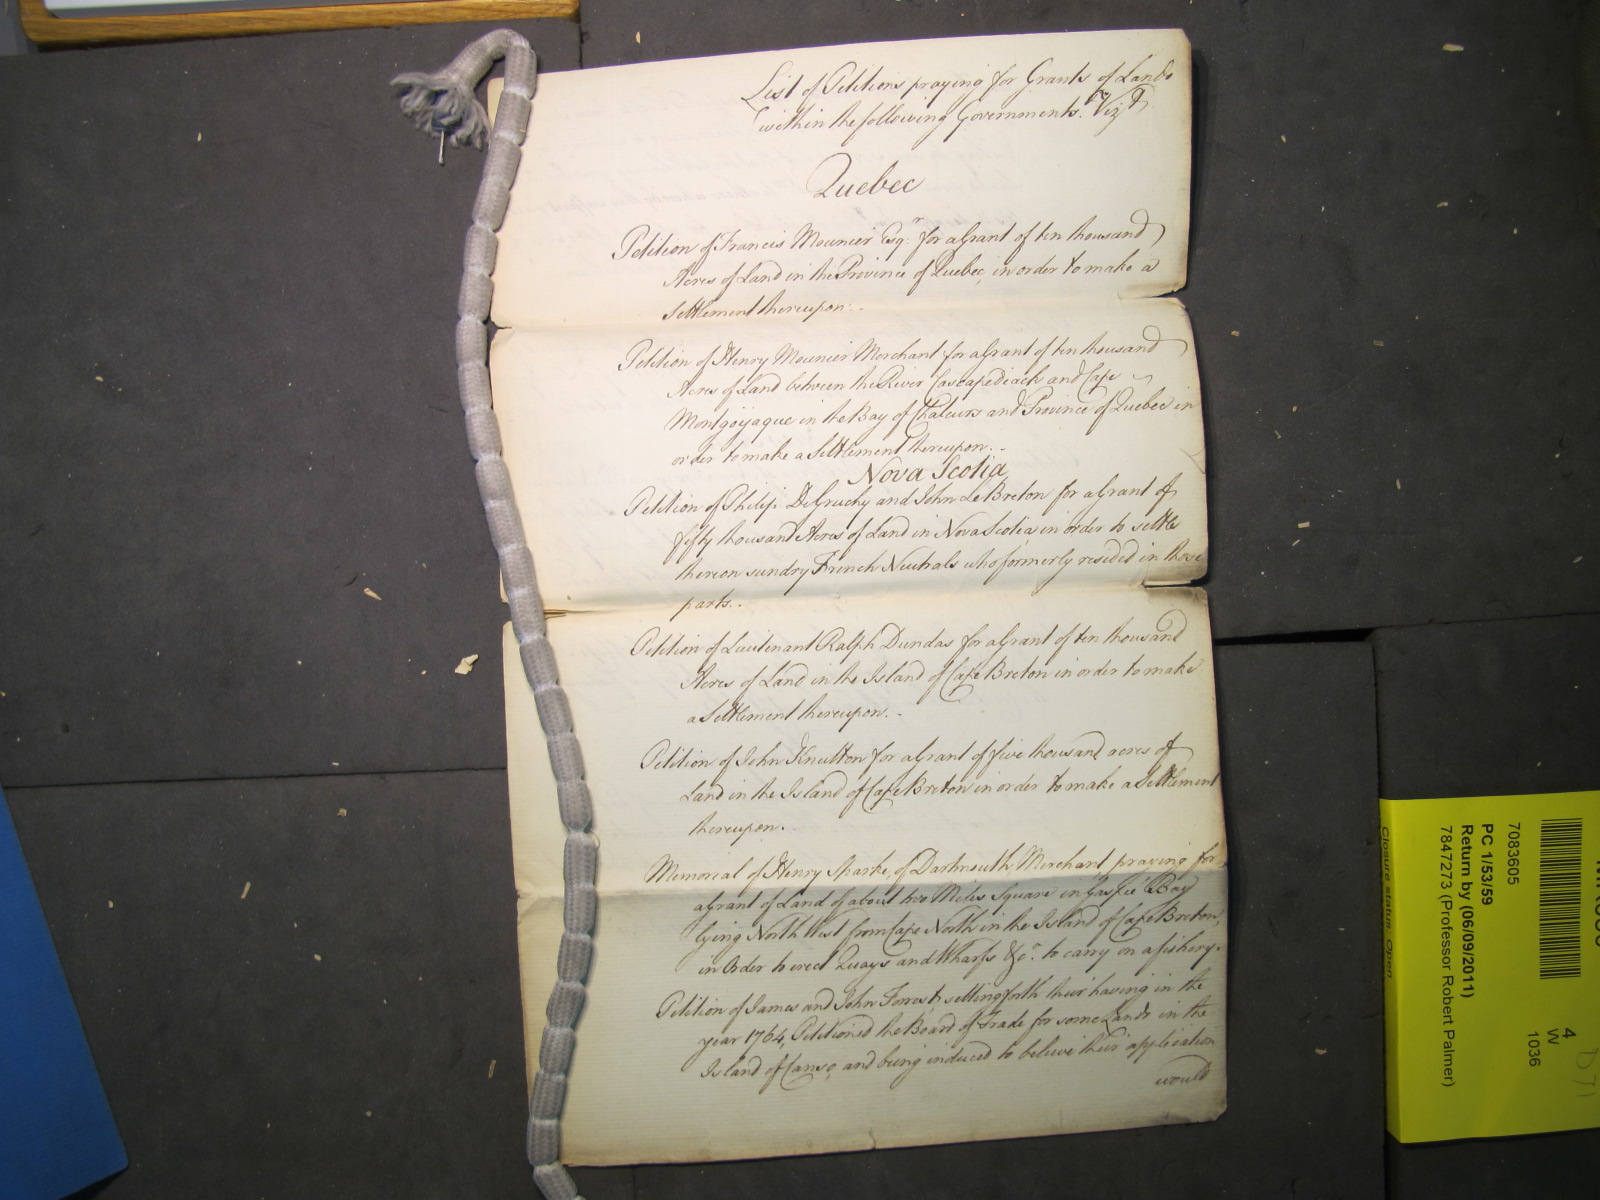 List of Petitions praying for Grants of Lands
within the following Governments. Vizt.
Quebec
Petition of Francis Mounier Esqr. for a Grant of ten thousand
Acres of Land in the Province of Quebec, in order to make a
Settlement thereupon. -
Petition of Henry Mounier Merchant for a Grant of ten thousand
Acres of Land between the River Cascapediach and Cape
Montgoyaque in the Bay of Chaleurs and Province of Quebec in
order to make a Settlement thereupon. -
Nova Scotia
Petition of Philip DeGruchy and John LeBreton for a Grant of
fifty thousand Acres of Land in Nova Scotia in order to settle
thereon sundry French Neutrals who formerly resided in those
parts. -
Petition of Lieutenant Ralph Dundas for a Grant of ten thousand
Acres of Land in the Island of Cape Breton in order to make
a Settlement thereupon. -
Petition of John Knutton for a Grant of five thousand acres of
Land in the Island of Cape Breton in order to make a Settlement
thereupon.
Memorial of Henry Sparke, of Dartmouth, Merchant, praying for
a Grant of Land of about two Miles Square in Gaspee Bay
lying North West from Cape North in the Island of Cape Breton,
in Order to erect Quays and Wharfs &ca. to carry on a fishery.
Petition of James and John Forrest, setting forth their having in the
year 1764, Petitioned the Board of Trade for some Lands in the
Island of Canso, and being induced to believe their application
would
7083605
PC 1/53/59
Return by (06/09/2011)
7847273 (Professor Robert Palmer)
Closure status: Open
4
W
1036